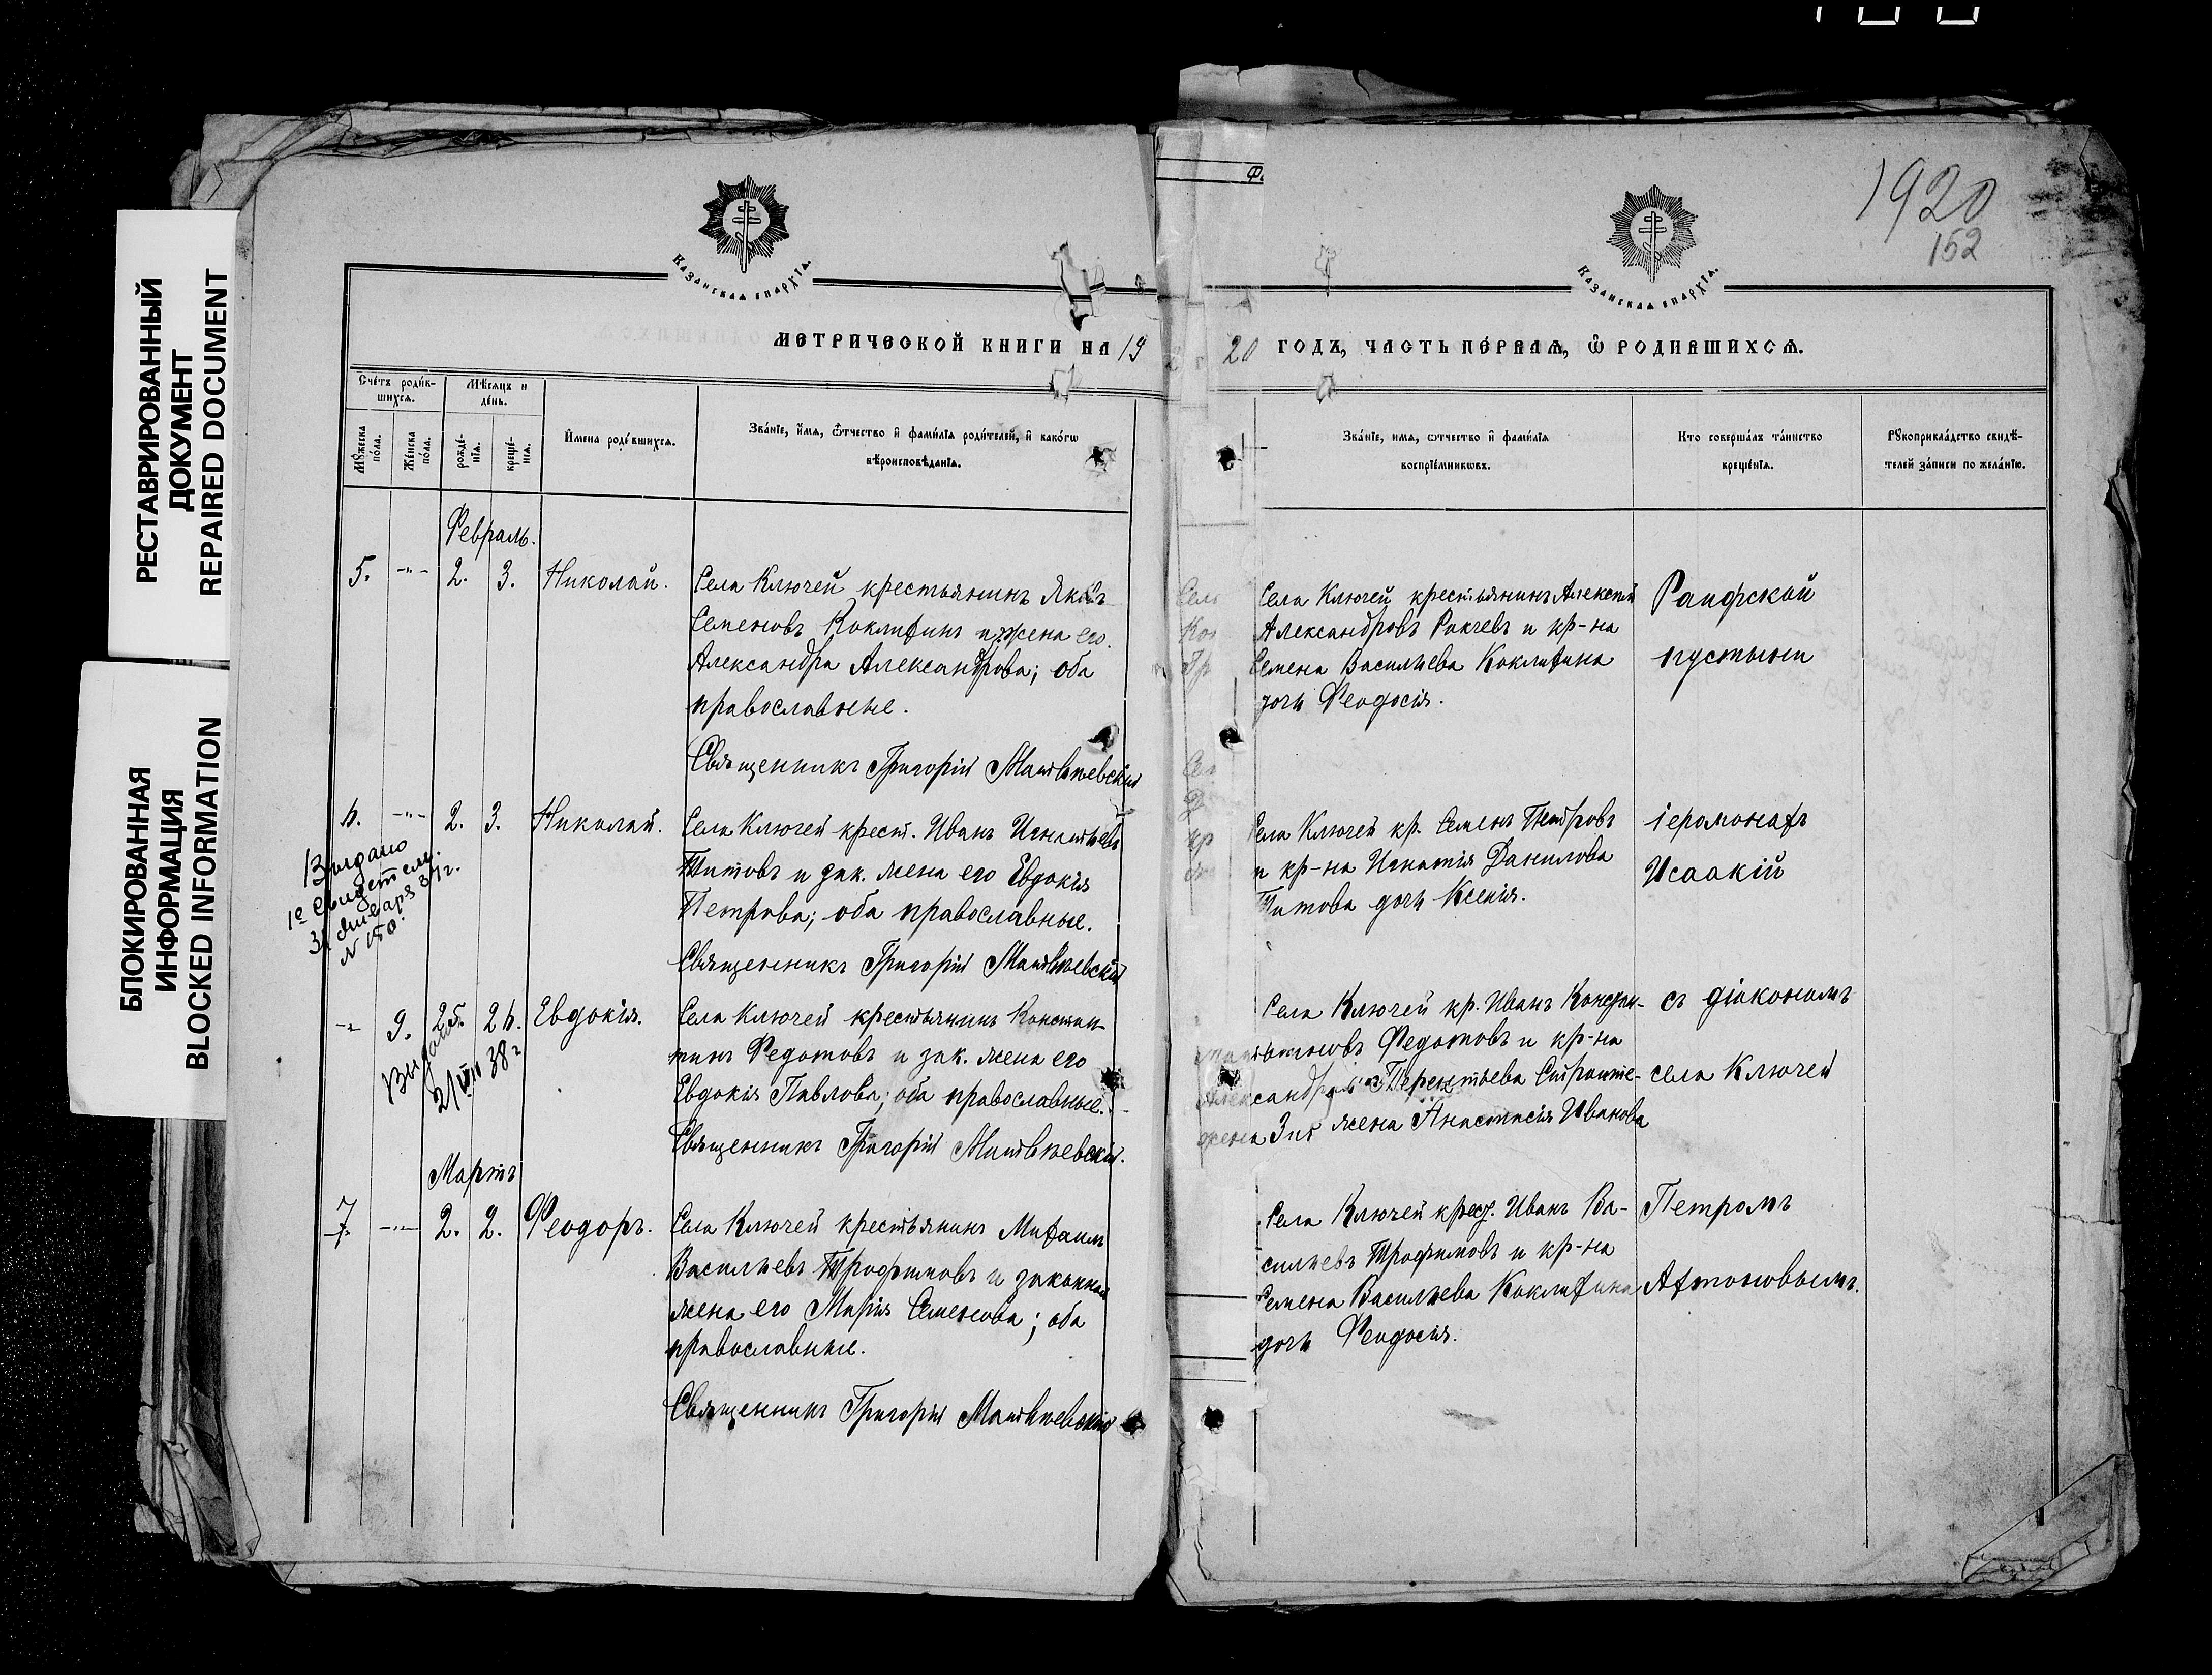 1920
152
РЕСТАВРИРОВАННЫЙ
ДОКУМЕНТ
REPAIRED DOCUMENT
БЛОКИРОВАННАЯ
ИНФОРМАЦИЯ
BLOCKED INFORMATION
Казанская епархїя.
Казанская епархїя.
МЕТРИЧЕСКОЙ КНИГИ НА 19
20 ГОДЪ, ЧАСТЬ ПЕРВАЯ, Ѽ РОДИВШИХСЯ.
Счетъ родив-
шихся.
Мѣсяцъ и
день.
Мужеска
пола.
Женска
пола.
рожде-
нїя.
креще-
нїя.
Имена родившихся.
Званїе, имя, ѿчество и фамилїя родителей, и какогѡ
вѣроисповѣданїя.
Званїе, имя, ѿчество и фамилїя
воспрїемниковъ.
Кто совершалъ таинство
крещенїя.
Рукоприкладство свидѣ-
телей записи по желанїю.
Февраль.
5. -"- 2. 3. Николай.
Села Ключей крестьянинъ Яковъ
Семеновъ Коклихинъ и жена его
Александра Александрова; оба
православные.
Священникъ Григорій Матвѣевскій
Села Ключей крестьянинъ Алексѣй
Александровъ и кр-на
Семена Васильева Коклихина
дочь Феодосія.
Раифской
пустыни
6. -"- 2. 3. Николай.
Выдано
1е свидет ем.
31 января 34 г.
N 150.
Села Ключей крест. Иванъ Игнатьевъ
Титовъ и зак. жена его Евдокія
Петрова; оба православные.
Священникъ Григорій Матвѣевскій
Села Ключей кр. Семенъ Петровъ
и кр-на Игнатія Данилова
Титова дочь Ксенія.
іеромонахъ
Исаакій
-"- 9. 25. 26. Евдокія.
Выдано
38 г
Села Ключей крестьянинъ Констан-
тинъ Федотовъ и зак. жена его
Евдокія Павлова; оба православные.
Священникъ Григорій Матвѣевскій.
Села Ключей кр. Иванъ Констан-
Федотовъ и кр-на
Александра Терентьева
жена Анастасія Иванова
съ діакономъ
села Ключей
Мартъ
7. -"- 2. 2. Феодоръ.
Села Ключей крестьянинъ Михаилъ
Васильевъ Трофимовъ и законная
жена его Марія Семенова; оба
православные.
Священникъ Григорій Матвѣевскій
Села Ключей крест. Иванъ Ва-
сильевъ Трофимовъ и кр-на
Семена Васильева Коклихина
дочь Феодосія.
Петромъ
Автоновымъ.